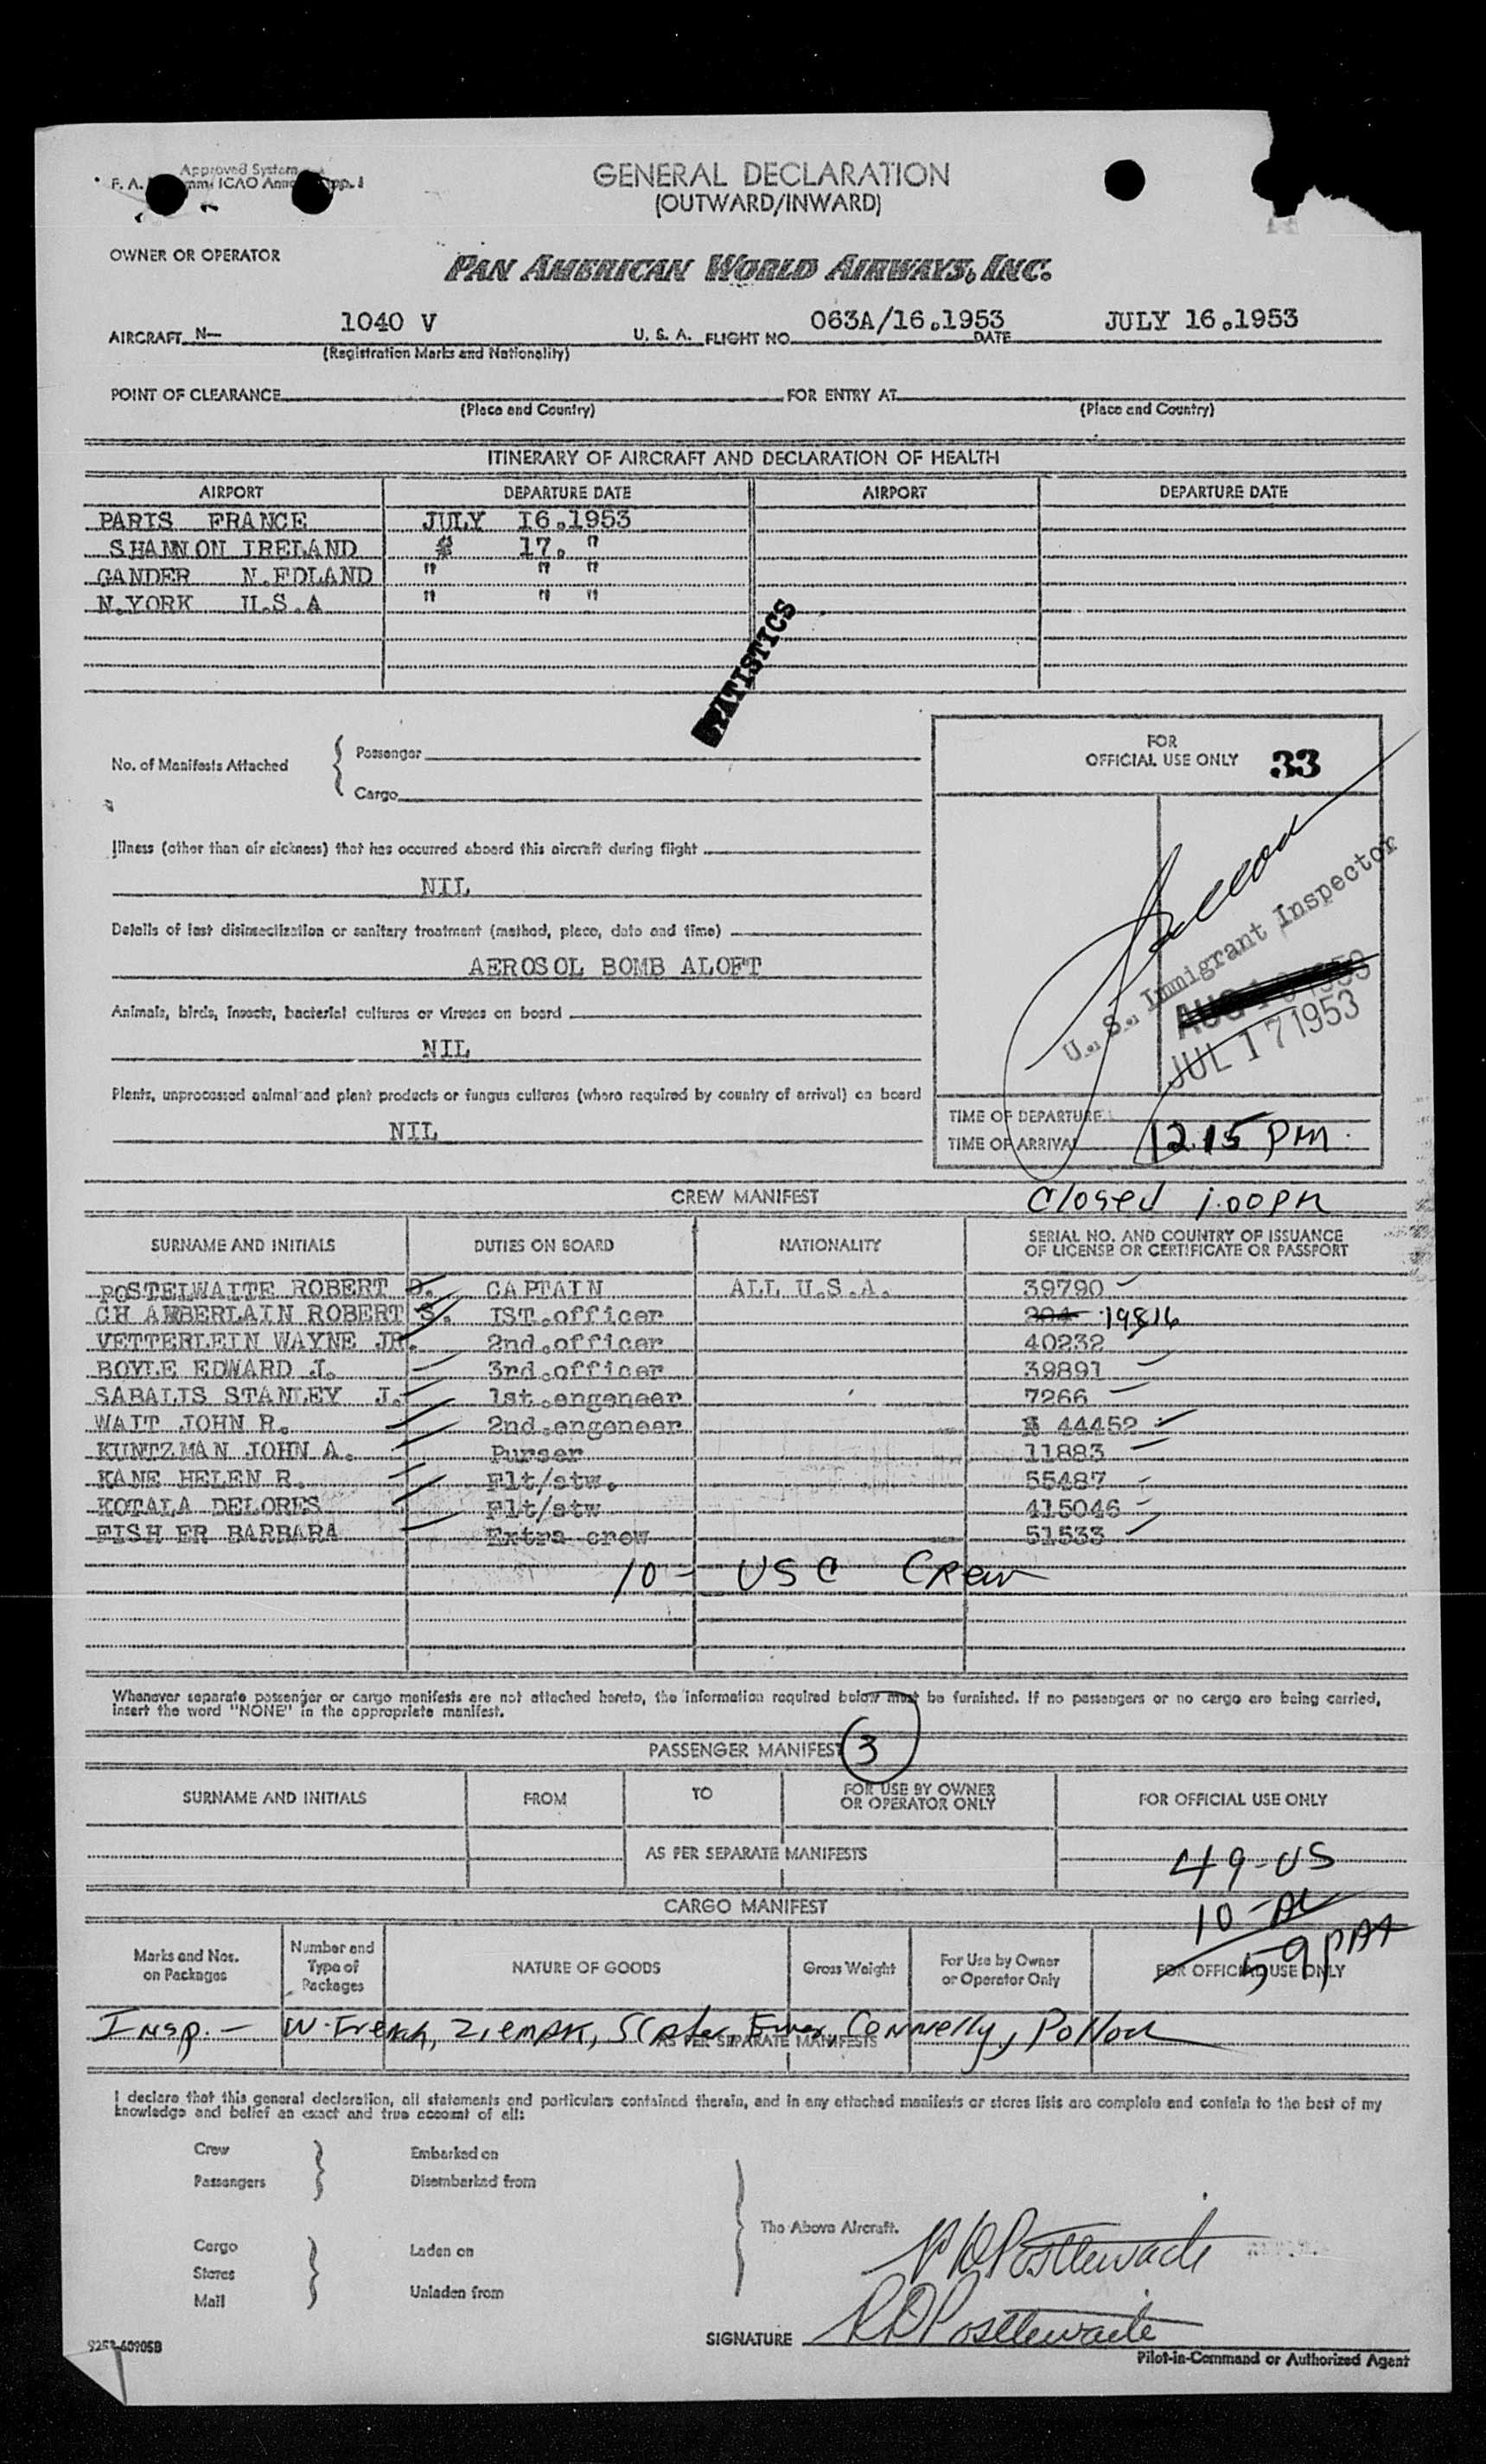 Approved System
F. A. ICAO
GENERAL DECLARATION
(OUTWARD/INWARD)
OWNER OR OPERATOR
PAN AMERICAN WORLD AIRWAYS, INC.
AIRCRAFT N— 1040 V U. S. A. FLIGHT NO. 063A/16.1953 DATE JULY 16.1953
(Registration Marks and Nationality)
POINT OF CLEARANCE FOR ENTRY AT
(Place and Country) (Place and Country)
ITINERARY OF AIRCRAFT AND DECLARATION OF HEALTH
AIRPORT DEPARTURE DATE AIRPORT DEPARTURE DATE
PARIS FRANCE JULY I6.1953
SHANNON IRELAND 17. "
GANDER N.FDLAND " " "
N.YORK U.S.A " " "
STATISTICS
No. of Manifests Attached { Passenger
Cargo
FOR
OFFICIAL USE ONLY 33
Illness (other than air sickness) that has occurred aboard this aircraft during flight
NIL
Details of last disinsectization or sanitary treatment (method, place, date and time)
AEROSOL BOMB ALOFT
Animals, birds, insects, bacterial cultures or viruses on board
NIL
Plants, unprocessed animal and plant products or fungus cultures (where required by country of arrival) on board
NIL
U. S. Immigrant Inspector
JUL 17 1953
TIME OF DEPARTURE
TIME OF ARRIVAL 12.15 PM.
CREW MANIFEST Closed 1.00 PM
SURNAME AND INITIALS DUTIES ON BOARD NATIONALITY SERIAL NO. AND COUNTRY OF ISSUANCE
OF LICENSE OR CERTIFICATE OR PASSPORT
POSTELWAITE ROBERT D. CAPTAIN ALL U.S.A. 39790
CHAMBERLAIN ROBERT S. IST.officer 204 19816
VETTERLEIN WAYNE JR. 2nd.officer 40232
BOYLE EDWARD J. 3rd.officer 39891
SABALIS STANLEY J. 1st.engeneer 7266
WAIT JOHN R. 2nd.engeneer 44452
KUNTZMAN JOHN A. Purser 11883
KANE HELEN R. Flt/stw. 55487
KOTALA DELORES Flt/stw 415046
FISHER BARBARA Extra crew 51533
10 - USC Crew
Whenever separate passenger or cargo manifests are not attached hereto, the information required below must be furnished. If no passengers or no cargo are being carried,
insert the word "NONE" in the appropriate manifest.
PASSENGER MANIFEST 3
SURNAME AND INITIALS FROM TO FOR USE BY OWNER
OR OPERATOR ONLY FOR OFFICIAL USE ONLY
AS PER SEPARATE MANIFESTS 49-US
CARGO MANIFEST 10-AL
59 PAX
Marks and Nos.
on Packages Number and
Type of
Packages NATURE OF GOODS Gross Weight For Use by Owner
or Operator Only FOR OFFICIAL USE ONLY
Insp. - W. French, Connelly, Pollock
AS PER SEPARATE MANIFESTS
I declare that this general declaration, all statements and particulars contained therein, and in any attached manifests or stores lists are complete and contain to the best of my
knowledge and belief an exact and true account of all:
Crew Embarked on
Passengers Disembarked from
The Above Aircraft.
Cargo Laden on
Stores
Mail Unladen from
R D Postlewaite
SIGNATURE R D Postlewaite
9253-60905B Pilot-in-Command or Authorized Agent